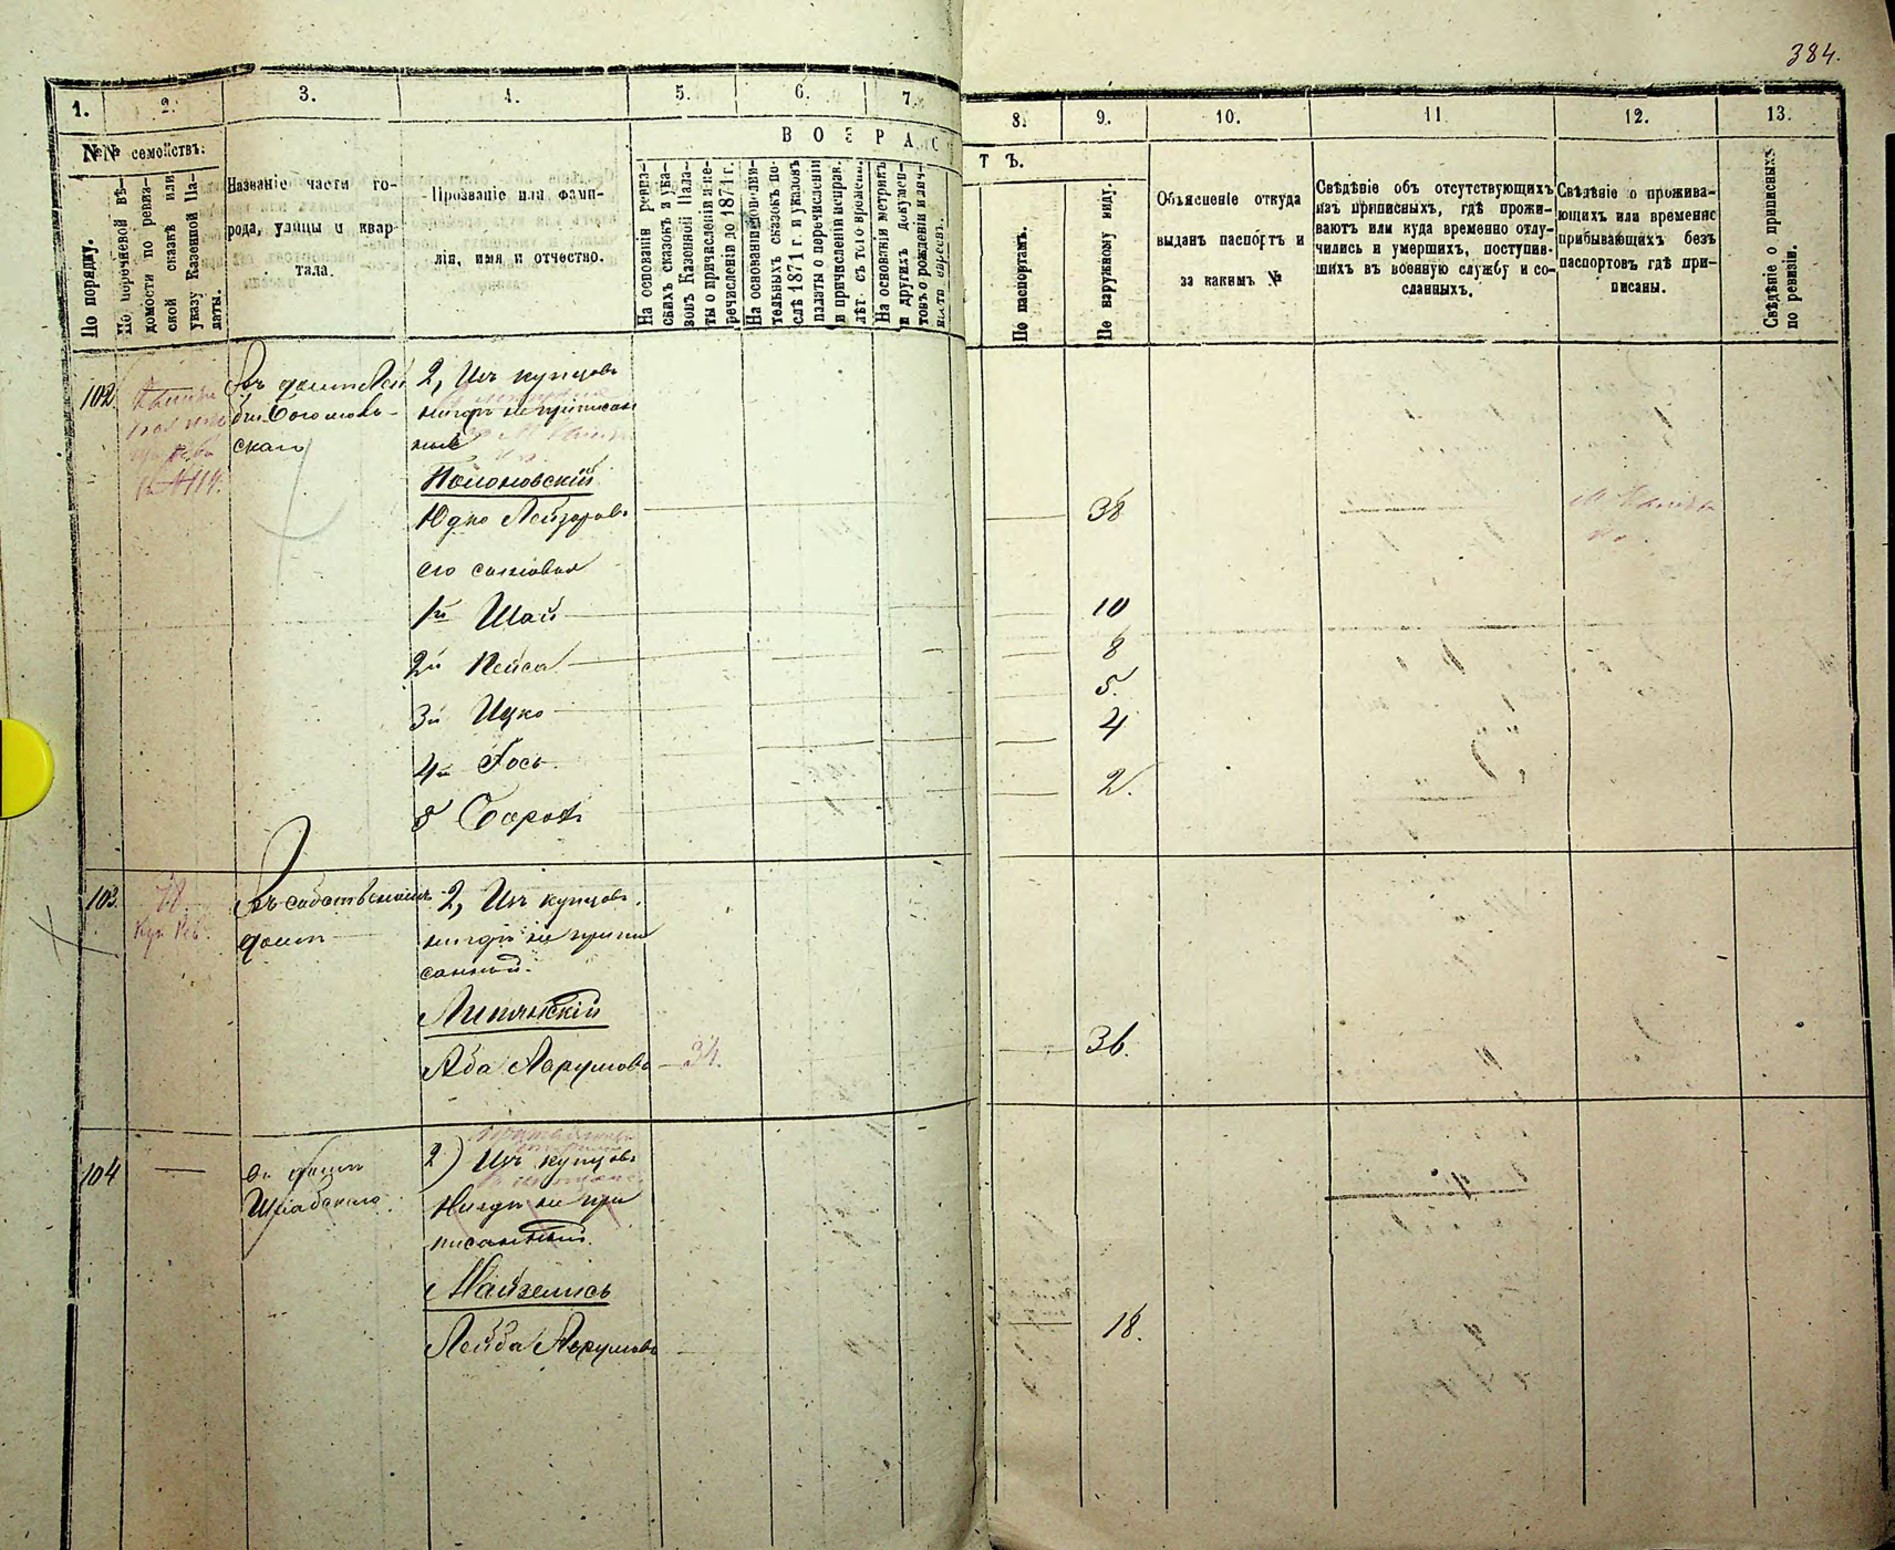 384.
1.
2.
3.
4.
5.
6.
7.
8.
9.
10.
11
12.
13.
№№ семействъ.
ВОЗРАС
ТЪ.
По порядку.
По перечневой вѣ-
домости по ревиз-
ской сказкѣ или
указу Казенной Па-
латы.
Названіе части го-
рода, улицы и квар-
тала.
Прозваніе или фами-
лія, имя и отчество.
На основаніи ревиз-
скихъ сказокъ и ука-
зовъ Казенной Пала-
ты о причисленіи и пе-
речисленіи до 1871 г.
На основаніи
тельныхъ сказокъ по-
слѣ 1871 г. и указовъ
палаты о перечисленіи
и причисленіи исправ.
лѣт. съ того времени.
На основаніи метрикъ
и других докумен-
товъ о рожденіи и
По паспортамъ.
По наружному виду.
Объясненіе откуда
выданъ паспортъ и
за какимъ №
Свѣдѣніе объ отсутствующихъ
изъ приписныхъ, гдѣ прожи-
ваютъ или куда временно отлу-
чились и умершихъ, поступив-
шихъ въ военную службу и со-
сланныхъ.
Свѣдѣніе о прожива-
ющихъ или временно
прибывающихъ безъ
паспортовъ гдѣ при-
писаны.
Свѣдѣніе о приписныхъ
по ревизіи.
102
№ 114.
въ домѣ
2, Изъ купцовъ
нигдѣ не приписан
ные
Юдко Лейзоровъ
38
его сыновья
1й Шай
10
2й Пейса
8
3й Ицко
5.
4й Іось
4
5 Борохъ
2.
103.
78
въ собственномъ
домѣ
2, Изъ купцовъ
нигдѣ не припи
санный.
Липянскій
Аба Аврумовъ
34.
36.
104
въ домѣ
2) Изъ купцовъ
Нигдѣ не при
писанный.
Майзелисъ
Лейба Аврумовъ
18.